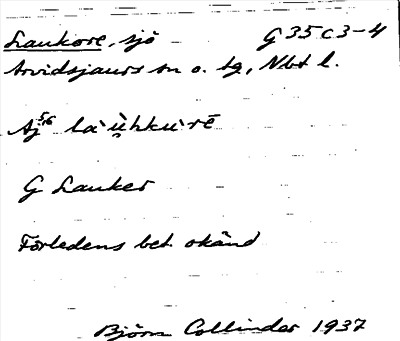 Laukore, sjö G 35 c 3-4
Arvidsjaurs sn o. tg, Nbt l.
Aj 5,6 la`u̯hku`rē
G Lauker
Förledens bet okänd
Björn Collinder 1937